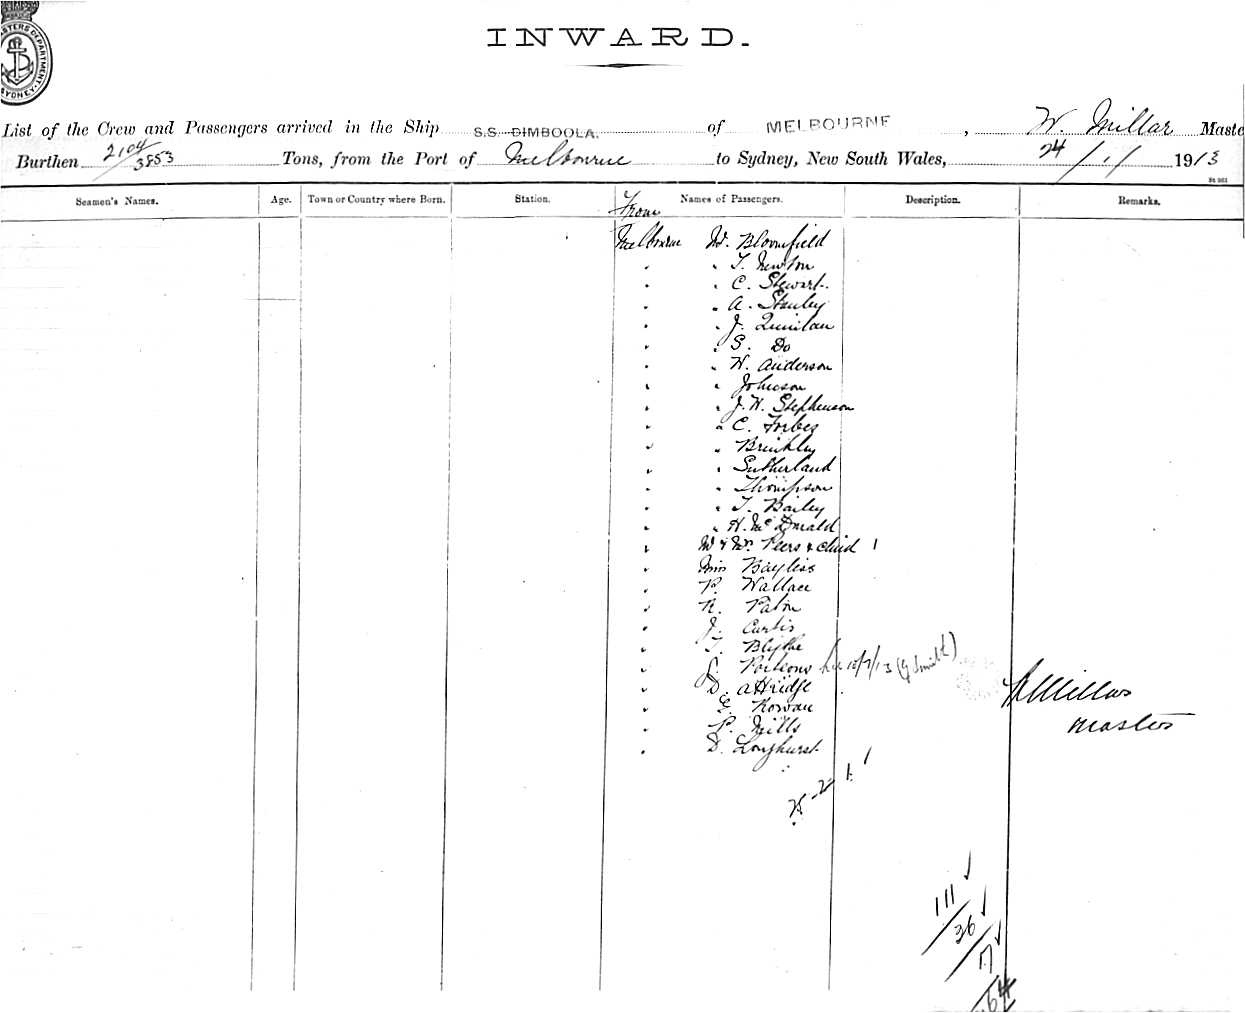 MASTERS DEPARTMENT
SYDNEY
INWARD.
List of the Crew and Passengers arrived in the Ship S.S. DIMBOOLA. of MELBOURNE, W. Millar Maste
Burthen 2104/3853 Tons, from the Port of Melbourne to Sydney, New South Wales, 24/1/1913
St 961
Seamen's Names. Age. Town or Country where Born. Station. Names of Passengers. Description. Remarks.
From
Melbourne Mr. Bloomfield
" " T. Newton
" " C. Stewart
" " A. Stanley
" " J. Quinlan
" " S. Do
" " W. Anderson
" " Johnson
" " J. W. Stephenson
" " C. Forbes
" " Brinkley
" " Sutherland
" " Thompson
" " T. Bailey
" " H. McDonald
" Mr & Mrs Peers & child 1
" Miss Bayliss
" P. Wallace
" R. Paton
" J. Curtis
" T. Blythe
" Porteous 10/7/13 (G Smith)
" D. Attridge
" E. Rowan
" P. Mills
" D. Longhurst
25-2 1. 1
W Millar
Master
111
36
17
64